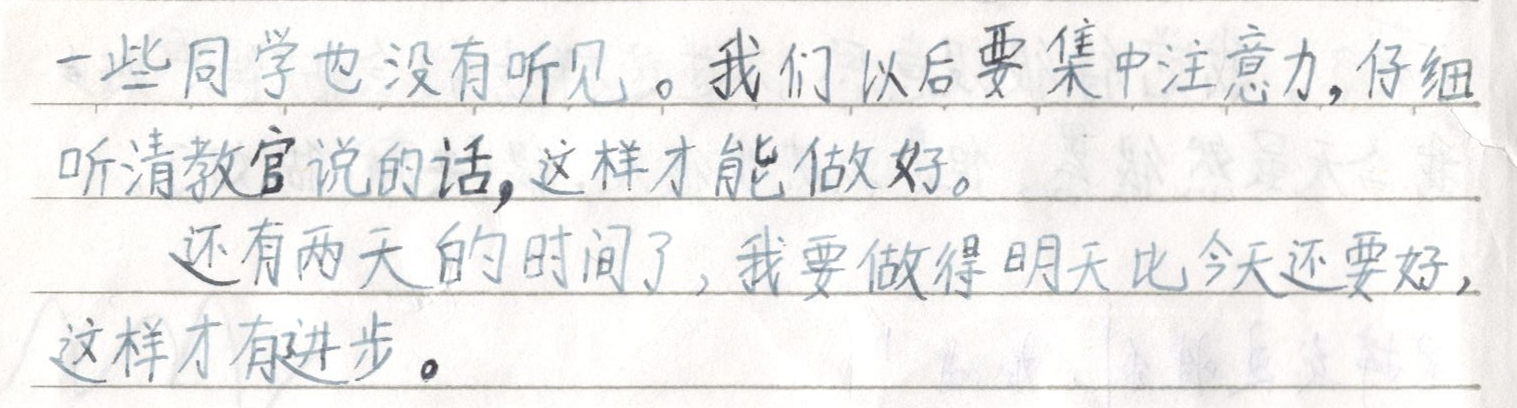 一些同学也没有听见。我们以后要集中注意力,仔细
听清教官说的话,这样才能做好。
还有两天的时间了,我要做得明天比今天还要好,
这样才有进步。